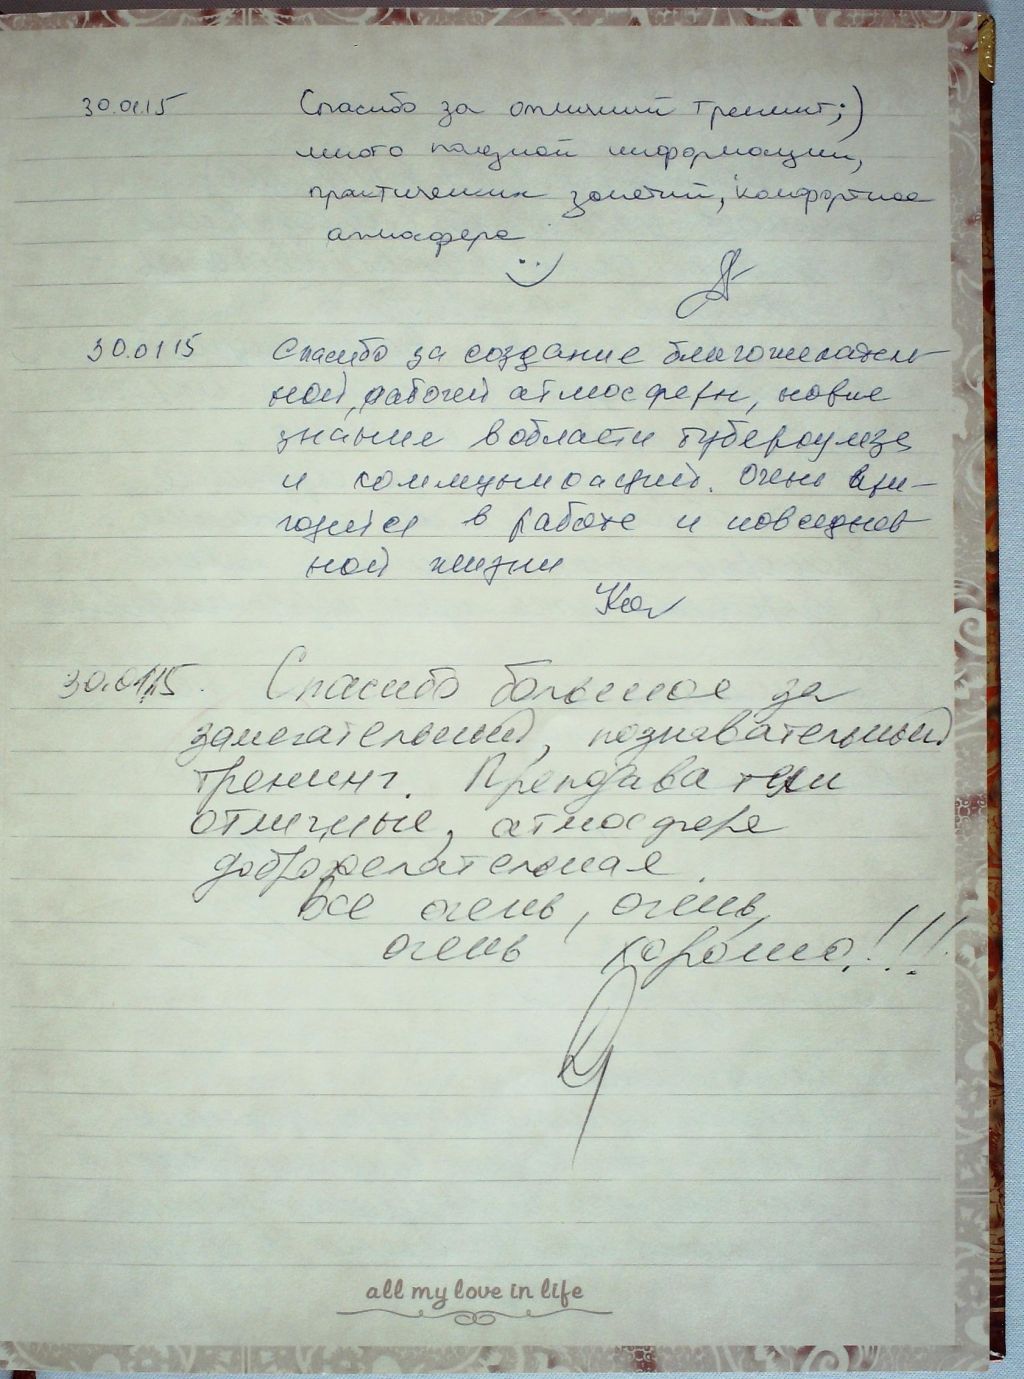 30.01.15 Спасибо за отличный тренинг ;)
много полезной информации,
практических занятий, комфортное
атмосфера
30.01 15 Спасибо за создание благожелатель-
ной, рабочей атмосферы, новые
знание в области туберкулеза
и коммуникаций. Очень при-
годится в работе и повседнев
ной жизни
30.01.15. Спасибо большое за
замечательный, познавательный
тренинг. Преподаватели
отличные, атмосфера
доброжелательная.
Все очень, очень,
очень хорошо!!!
all my love in life